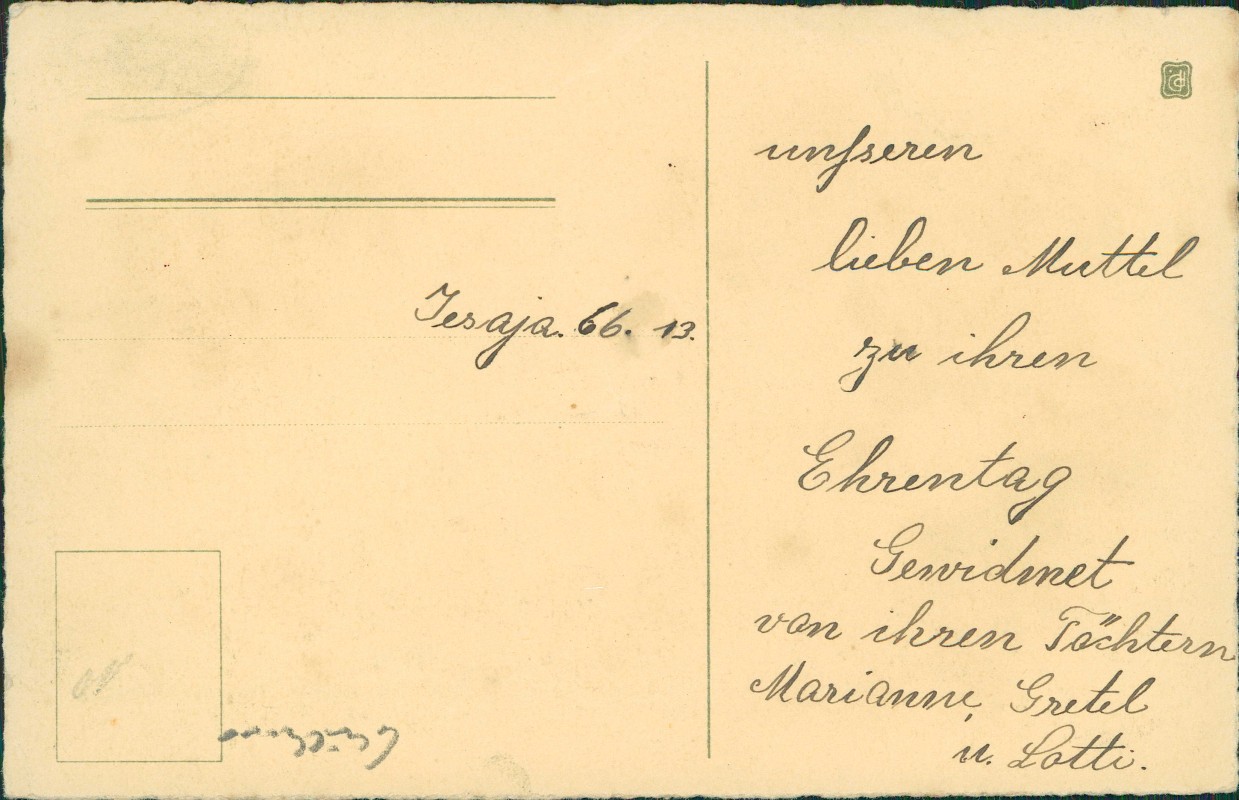 Jesaja. 66. 13.
unsseren
lieben Muttel
zu ihren
Ehrentag
Gewidmet
von ihren Töchtern
Marianne, Gretel
u. Lotti.